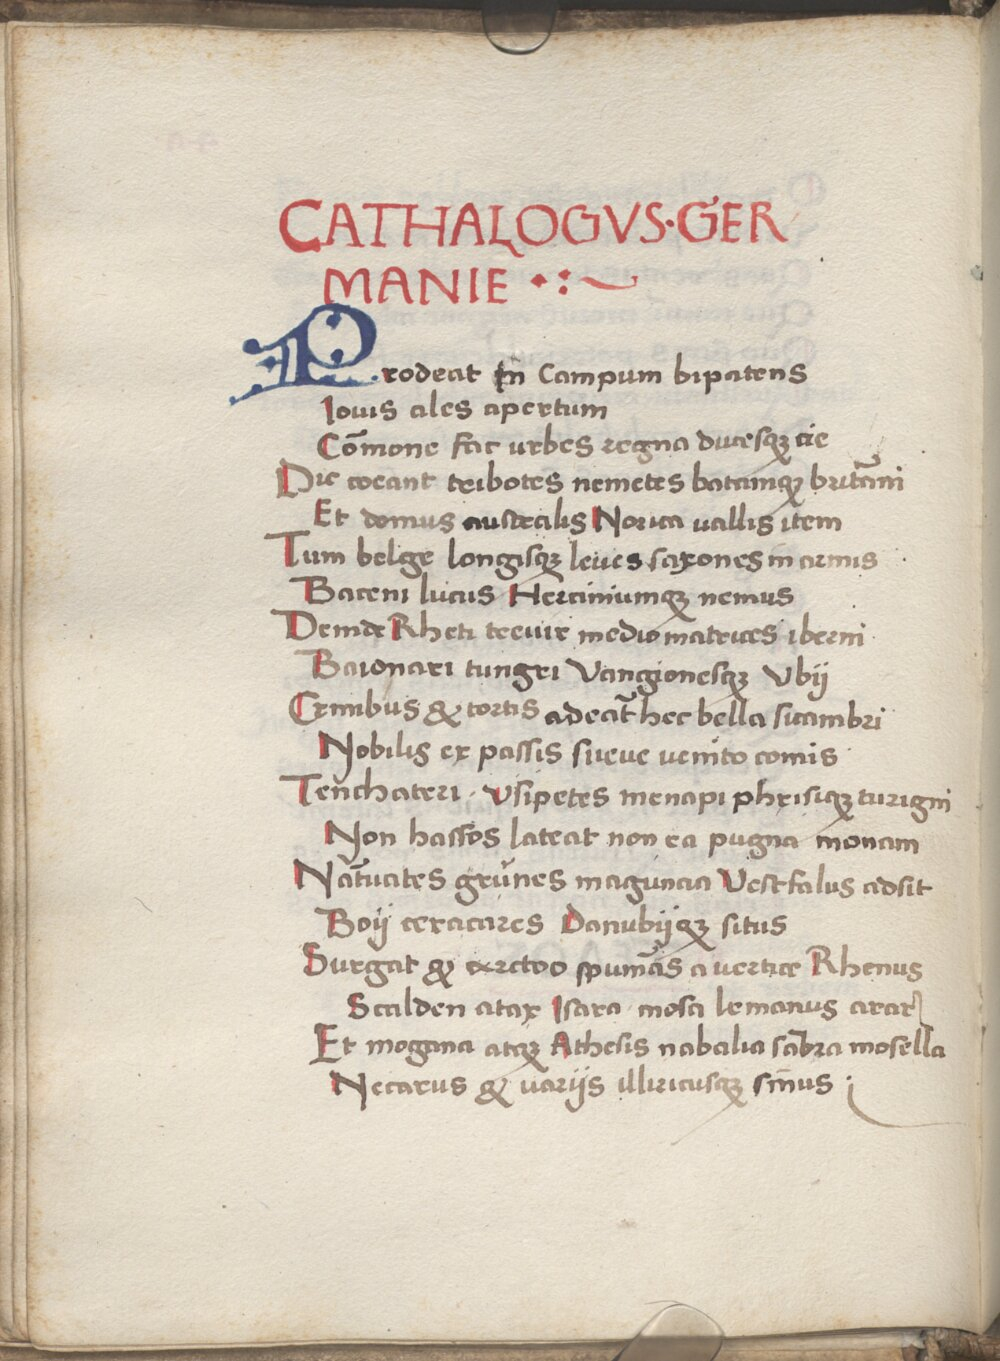 CATHALOGVS·GER
MANIE
Prodeat In Campum bipatens
Iouis ales apertum
Cōmone fac urbes regna ducesqꝫ cie
Dic coeant tribotes nemetes batauiqꝫ britāni
Et domus australis Norica uallis item
Tum belge longisqꝫ leues saxones in armis
Baceni lucus Herciniumqꝫ nemus
Deinde Rheti treuir mediomatrices iberni
Baionari tungri Vangionesqꝫ Vbij
Crinibus & tortis adeāt hec bella sicambri
Nobilis ex passis sueue uenito comis
Tenchateri· Vsipetes menapi phrisiqꝫ turigni
Non hassos lateat non ea pugna monam
Nātuates grūnes maguncia Vestfalus adsit
Boij ceracates Danubijqꝫ situs
Surgat & arctoo spumās a uertice Rhenus
Scalden atax Isara mosa lemanus arar
Et mogana atqꝫ Athesis nabalia sabra mosella
Necarus & uarijs illiricusqꝫ sinus